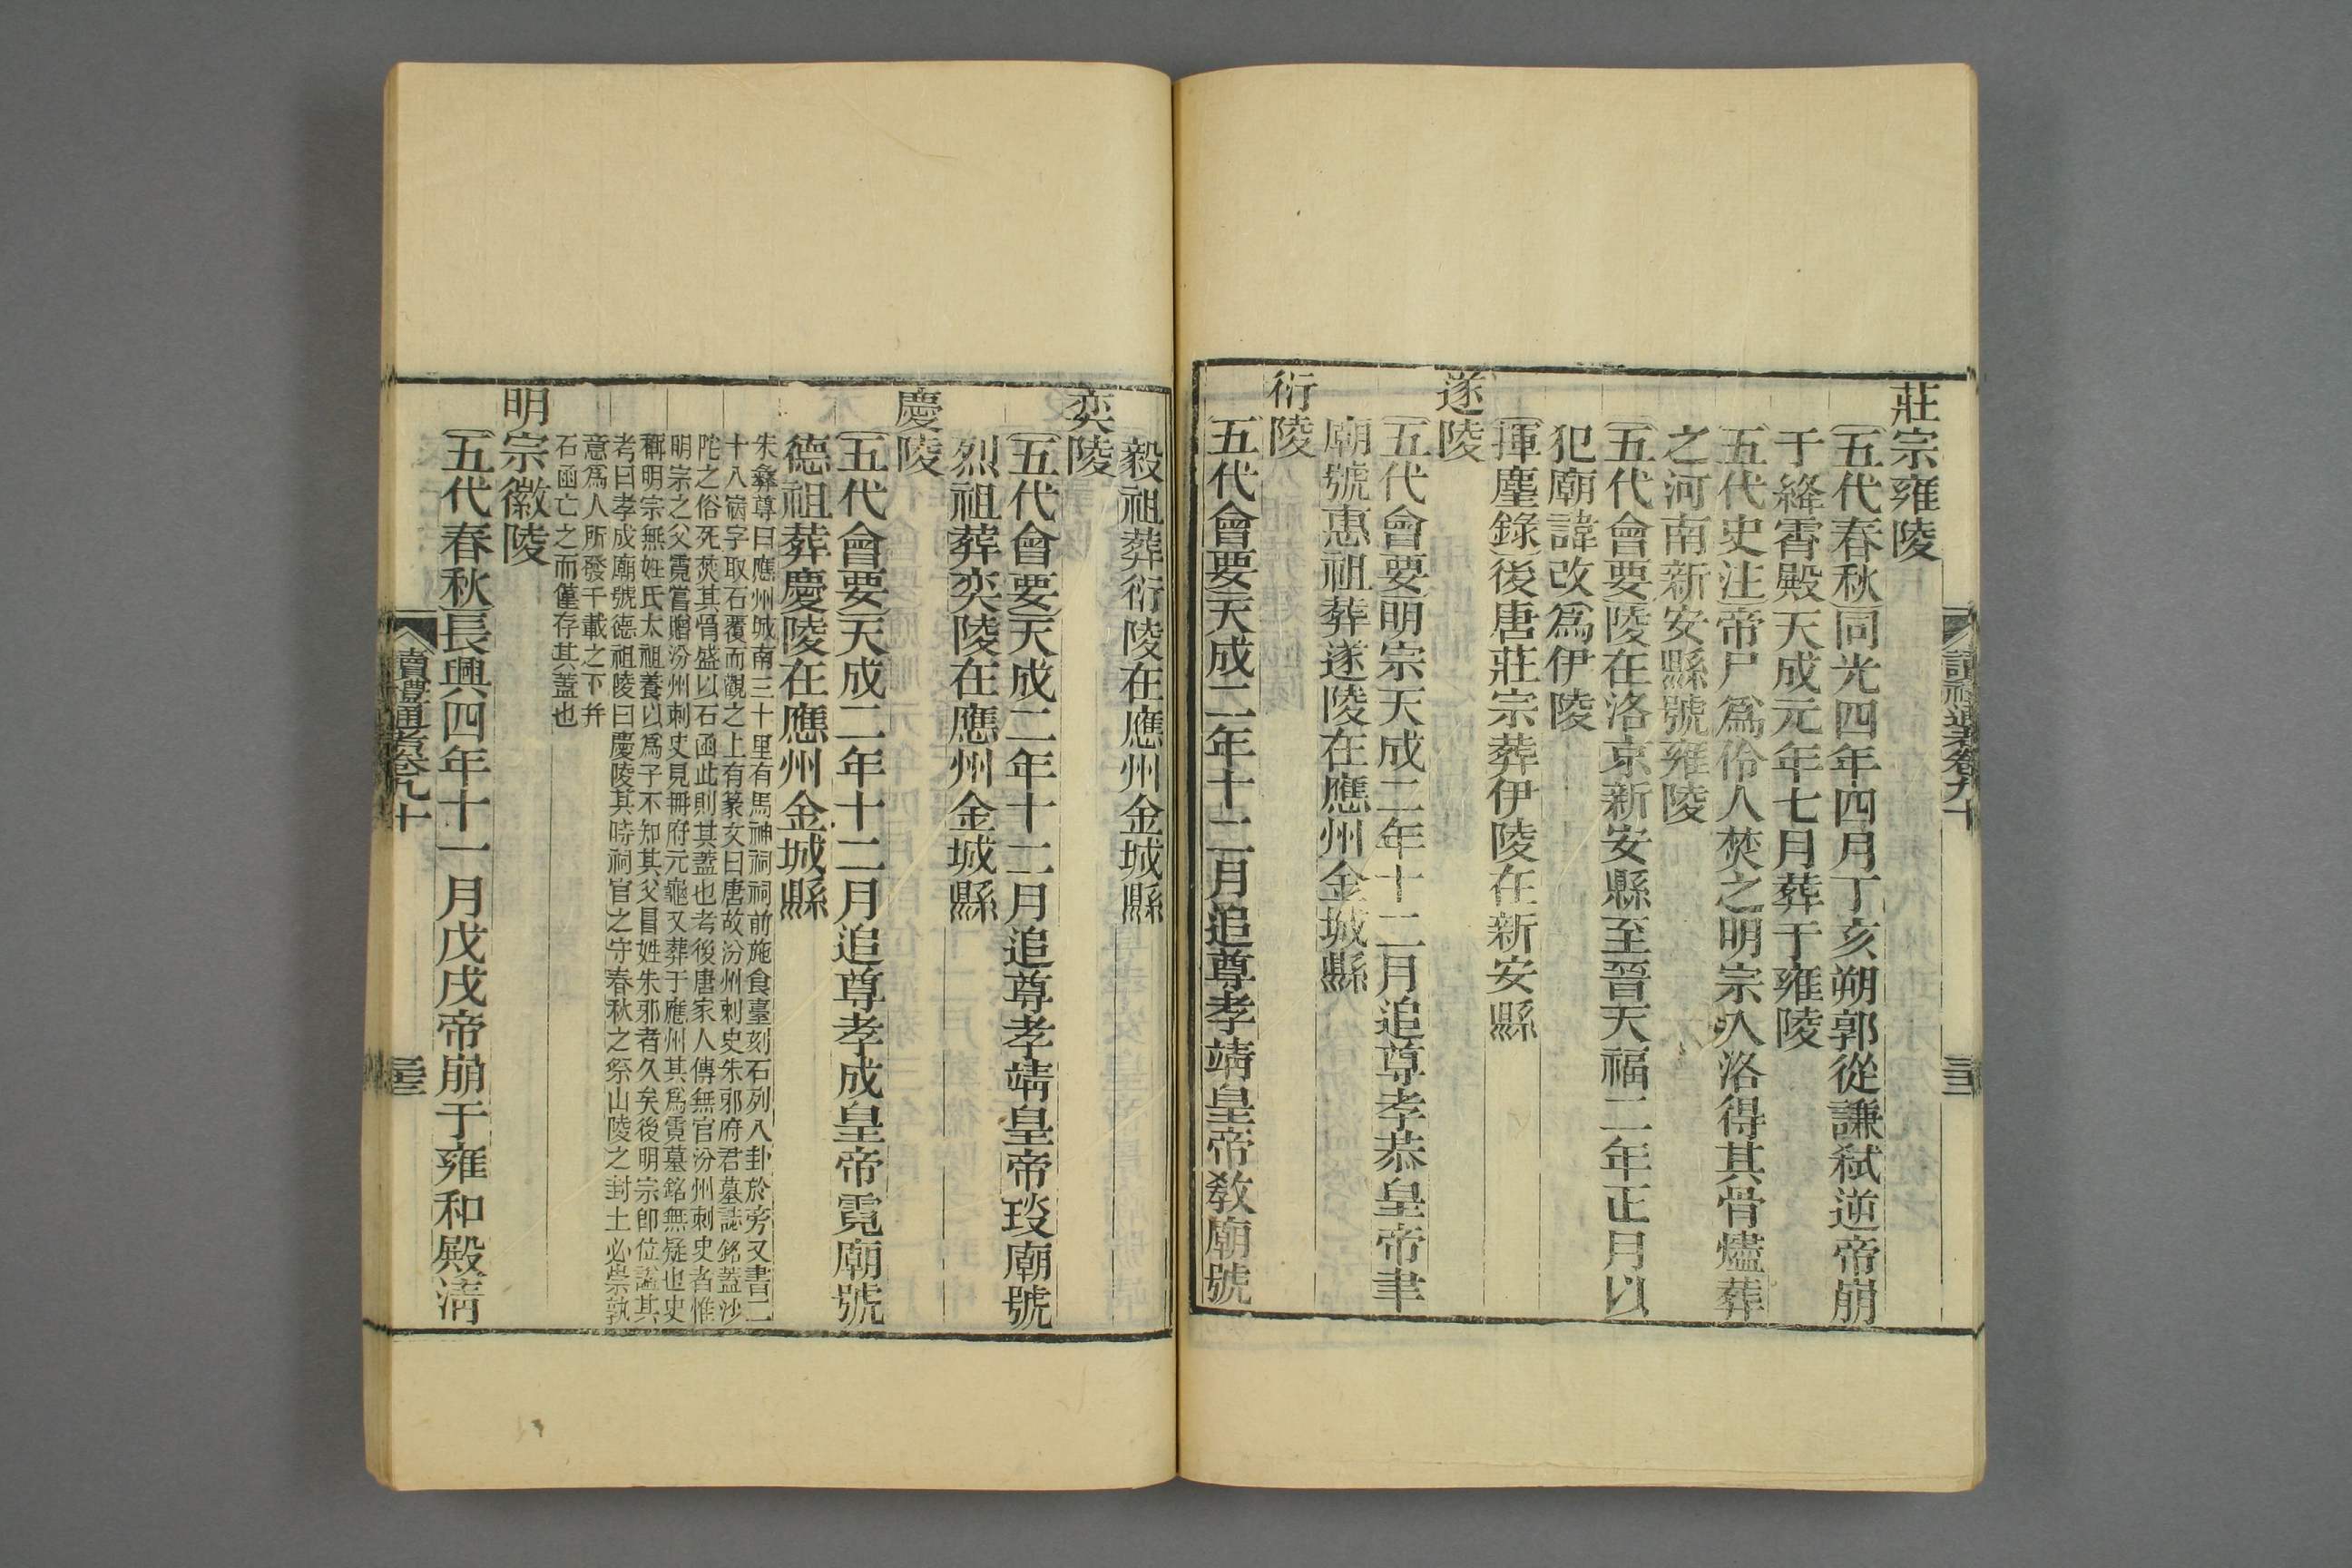 莊宗雍陵
五代春秋同光四年四月丁亥朔郭從謙弑逆帝崩
于絳霄殿天成元年七月葬于雍陵
五代史注帝尸爲伶人焚之明宗入洛得其骨燼葬
之河南新安縣號雍陵
五代會要陵在洛京新安縣至晉天福二年正月以
犯廟諱改爲伊陵
揮麈錄後唐莊宗葬伊陵在新安縣
遂陵
五代會要明宗天成二年十二月追尊孝恭皇帝聿
廟號惠祖葬遂陵在應州金城縣
衍陵
五代會要天成二年十二月追尊孝靖皇帝敎廟號
讀禮通考卷九十
毅祖葬衍陵在應州金城縣
奕陵
五代會要天成二年十二月追尊孝靖皇帝琰廟號
烈祖葬奕陵在應州金城縣
慶陵
五代會要天成二年十二月追尊孝成皇帝霓廟號
德祖葬慶陵在應州金城縣
朱彝尊曰應州城南三十里有馬神祠祠前施食臺刻石列八卦於旁又書二
十八宿字取石覆而觀之上有篆文曰唐故汾州刺史朱邪府君墓誌銘蓋沙
陀之俗死焚其骨盛以石函此則其蓋也考後唐家人傳無官汾州刺史者惟
明宗之父霓嘗贈汾州刺史見冊府元龜又葬于應州其爲霓墓銘無疑也史
稱明宗無姓氏太祖養以爲子不知其父冒姓朱邪者久矣後明宗卽位謚其
考曰孝成廟號德祖陵曰慶陵其時祠官之守春秋之祭山陵之封土必崇孰
意爲人所發千載之下幷
石函亡之而僅存其蓋也
明宗徽陵
五代春秋長興四年十一月戊戌帝崩于雍和殿淸
讀禮通考卷九十